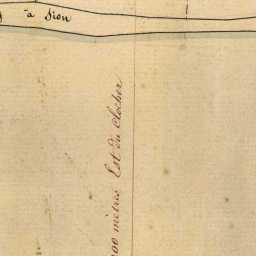 à Sion
00 mètres Est du clocher